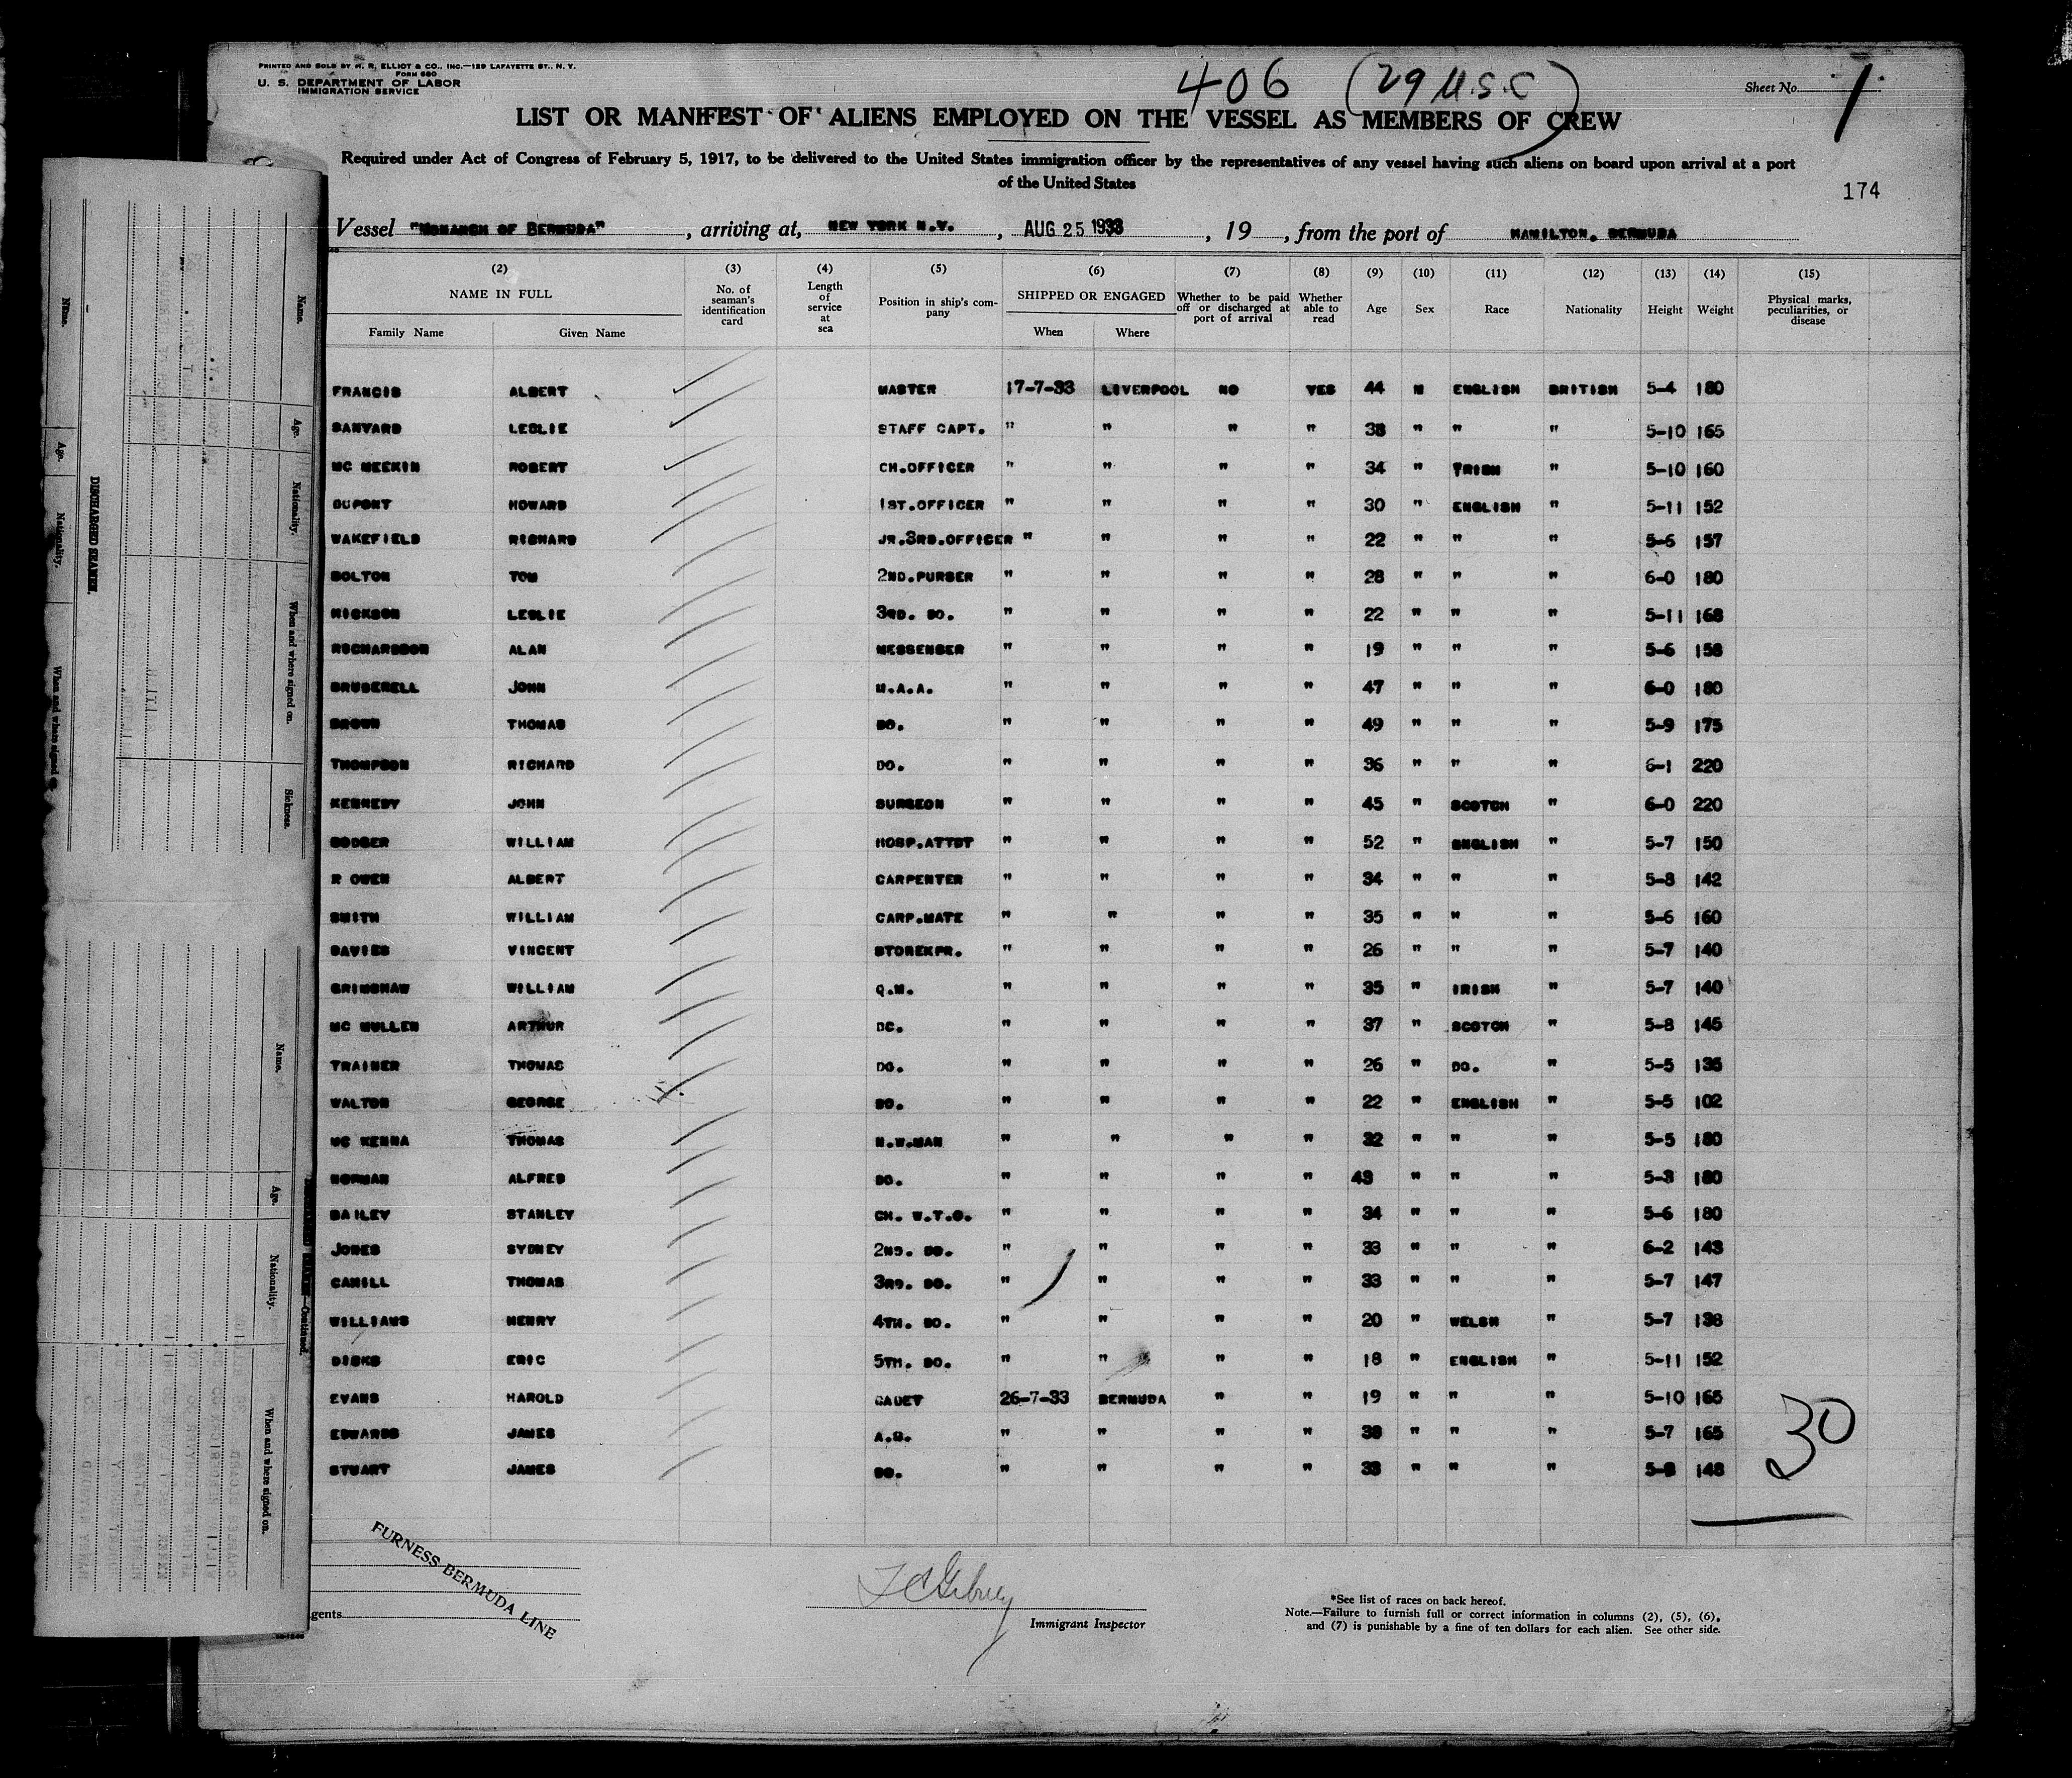 PRINTED AND SOLD BY H. R. ELLIOT & CO., INC.—129 LAFAYETTE ST., N. Y.
FORM 680
U. S. DEPARTMENT OF LABOR
IMMIGRATION SERVICE
406 (29 U.S.C)
Sheet No. 1
LIST OR MANIFEST OF ALIENS EMPLOYED ON THE VESSEL AS MEMBERS OF CREW
Required under Act of Congress of February 5, 1917, to be delivered to the United States immigration officer by the representatives of any vessel having such aliens on board upon arrival at a port
of the United States
174
Vessel "MONARCH OF BERMUDA", arriving at, NEW YORK N.Y., AUG 25 1933, 19 , from the port of HAMILTON, BERMUDA
(2) (3) (4) (5) (6) (7) (8) (9) (10) (11) (12) (13) (14) (15)
NAME IN FULL No. of seaman's identification card Length of service at sea Position in ship's company SHIPPED OR ENGAGED Whether to be paid off or discharged at port of arrival Whether able to read Age Sex Race Nationality Height Weight Physical marks, peculiarities, or disease
Family Name Given Name When Where
FRANCIS ALBERT MASTER 17-7-33 LIVERPOOL NO YES 44 M ENGLISH BRITISH 5-4 180
BANYARD LESLIE STAFF CAPT. " " " " 38 " " " 5-10 165
MC MEEKIN ROBERT CH.OFFICER " " " " 34 " IRISH " 5-10 160
DUPONT HOWARD 1ST.OFFICER " " " " 30 " ENGLISH " 5-11 152
WAKEFIELD RICHARD JR.3RD.OFFICER " " " " 22 " " " 5-6 157
BOLTON TOM 2ND.PURSER " " " " 28 " " " 6-0 180
HICKSON LESLIE 3RD. DO. " " " " 22 " " " 5-11 168
RICHARDSON ALAN MESSENGER " " " " 19 " " " 5-6 158
BRUDERELL JOHN M.A.A. " " " " 47 " " " 6-0 180
BROWN THOMAS DO. " " " " 49 " " " 5-9 175
THOMPSON RICHARD DO. " " " " 36 " " " 6-1 220
KENNEDY JOHN SURGEON " " " " 45 " SCOTCH " 6-0 220
WILLIAM HOSP.ATTDT " " " " 52 " ENGLISH " 5-7 150
R OWEN ALBERT CARPENTER " " " " 34 " " " 5-8 142
SMITH WILLIAM CARP.MATE " " " " 35 " " " 5-6 160
DAVIES VINCENT STOREKPR. " " " " 26 " " " 5-7 140
GRIMSHAW WILLIAM Q.M. " " " " 35 " IRISH " 5-7 140
MC MULLEN ARTHUR DO. " " " " 37 " SCOTCH " 5-8 145
TRAINER THOMAS DO. " " " " 26 " DO. " 5-5 136
WALTON GEORGE DO. " " " " 22 " ENGLISH " 5-5 102
MC KENNA THOMAS N.W.MAN " " " " 32 " " " 5-5 180
NORMAN ALFRED DO. " " " " 43 " " " 5-8 180
BAILEY STANLEY CH. W.T.O. " " " " 34 " " " 5-6 180
JONES SYDNEY 2ND. DO. " " " " 33 " " " 6-2 143
CAHILL THOMAS 3RD. DO. " " " " 33 " " " 5-7 147
WILLIAMS HENRY 4TH. DO. " " " " 20 " WELSH " 5-7 138
DICKS ERIC 5TH. DO. " " " " 18 " ENGLISH " 5-11 152
EVANS HAROLD CADET 26-7-33 BERMUDA " " 19 " " " 5-10 165
EDWARDS JAMES A.B. " " " " 38 " " " 5-7 165
STUART JAMES DO. " " " " 38 " " " 148
30
FURNESS BERMUDA LINE
gents
Immigrant Inspector
*See list of races on back hereof.
Note.—Failure to furnish full or correct information in columns (2), (5), (6),
and (7) is punishable by a fine of ten dollars for each alien. See other side.
DISCHARGED SEAMEN.
Name. Age. Nationality. When and where signed on. Sickness.
Name. Age. Nationality. When and where signed on.